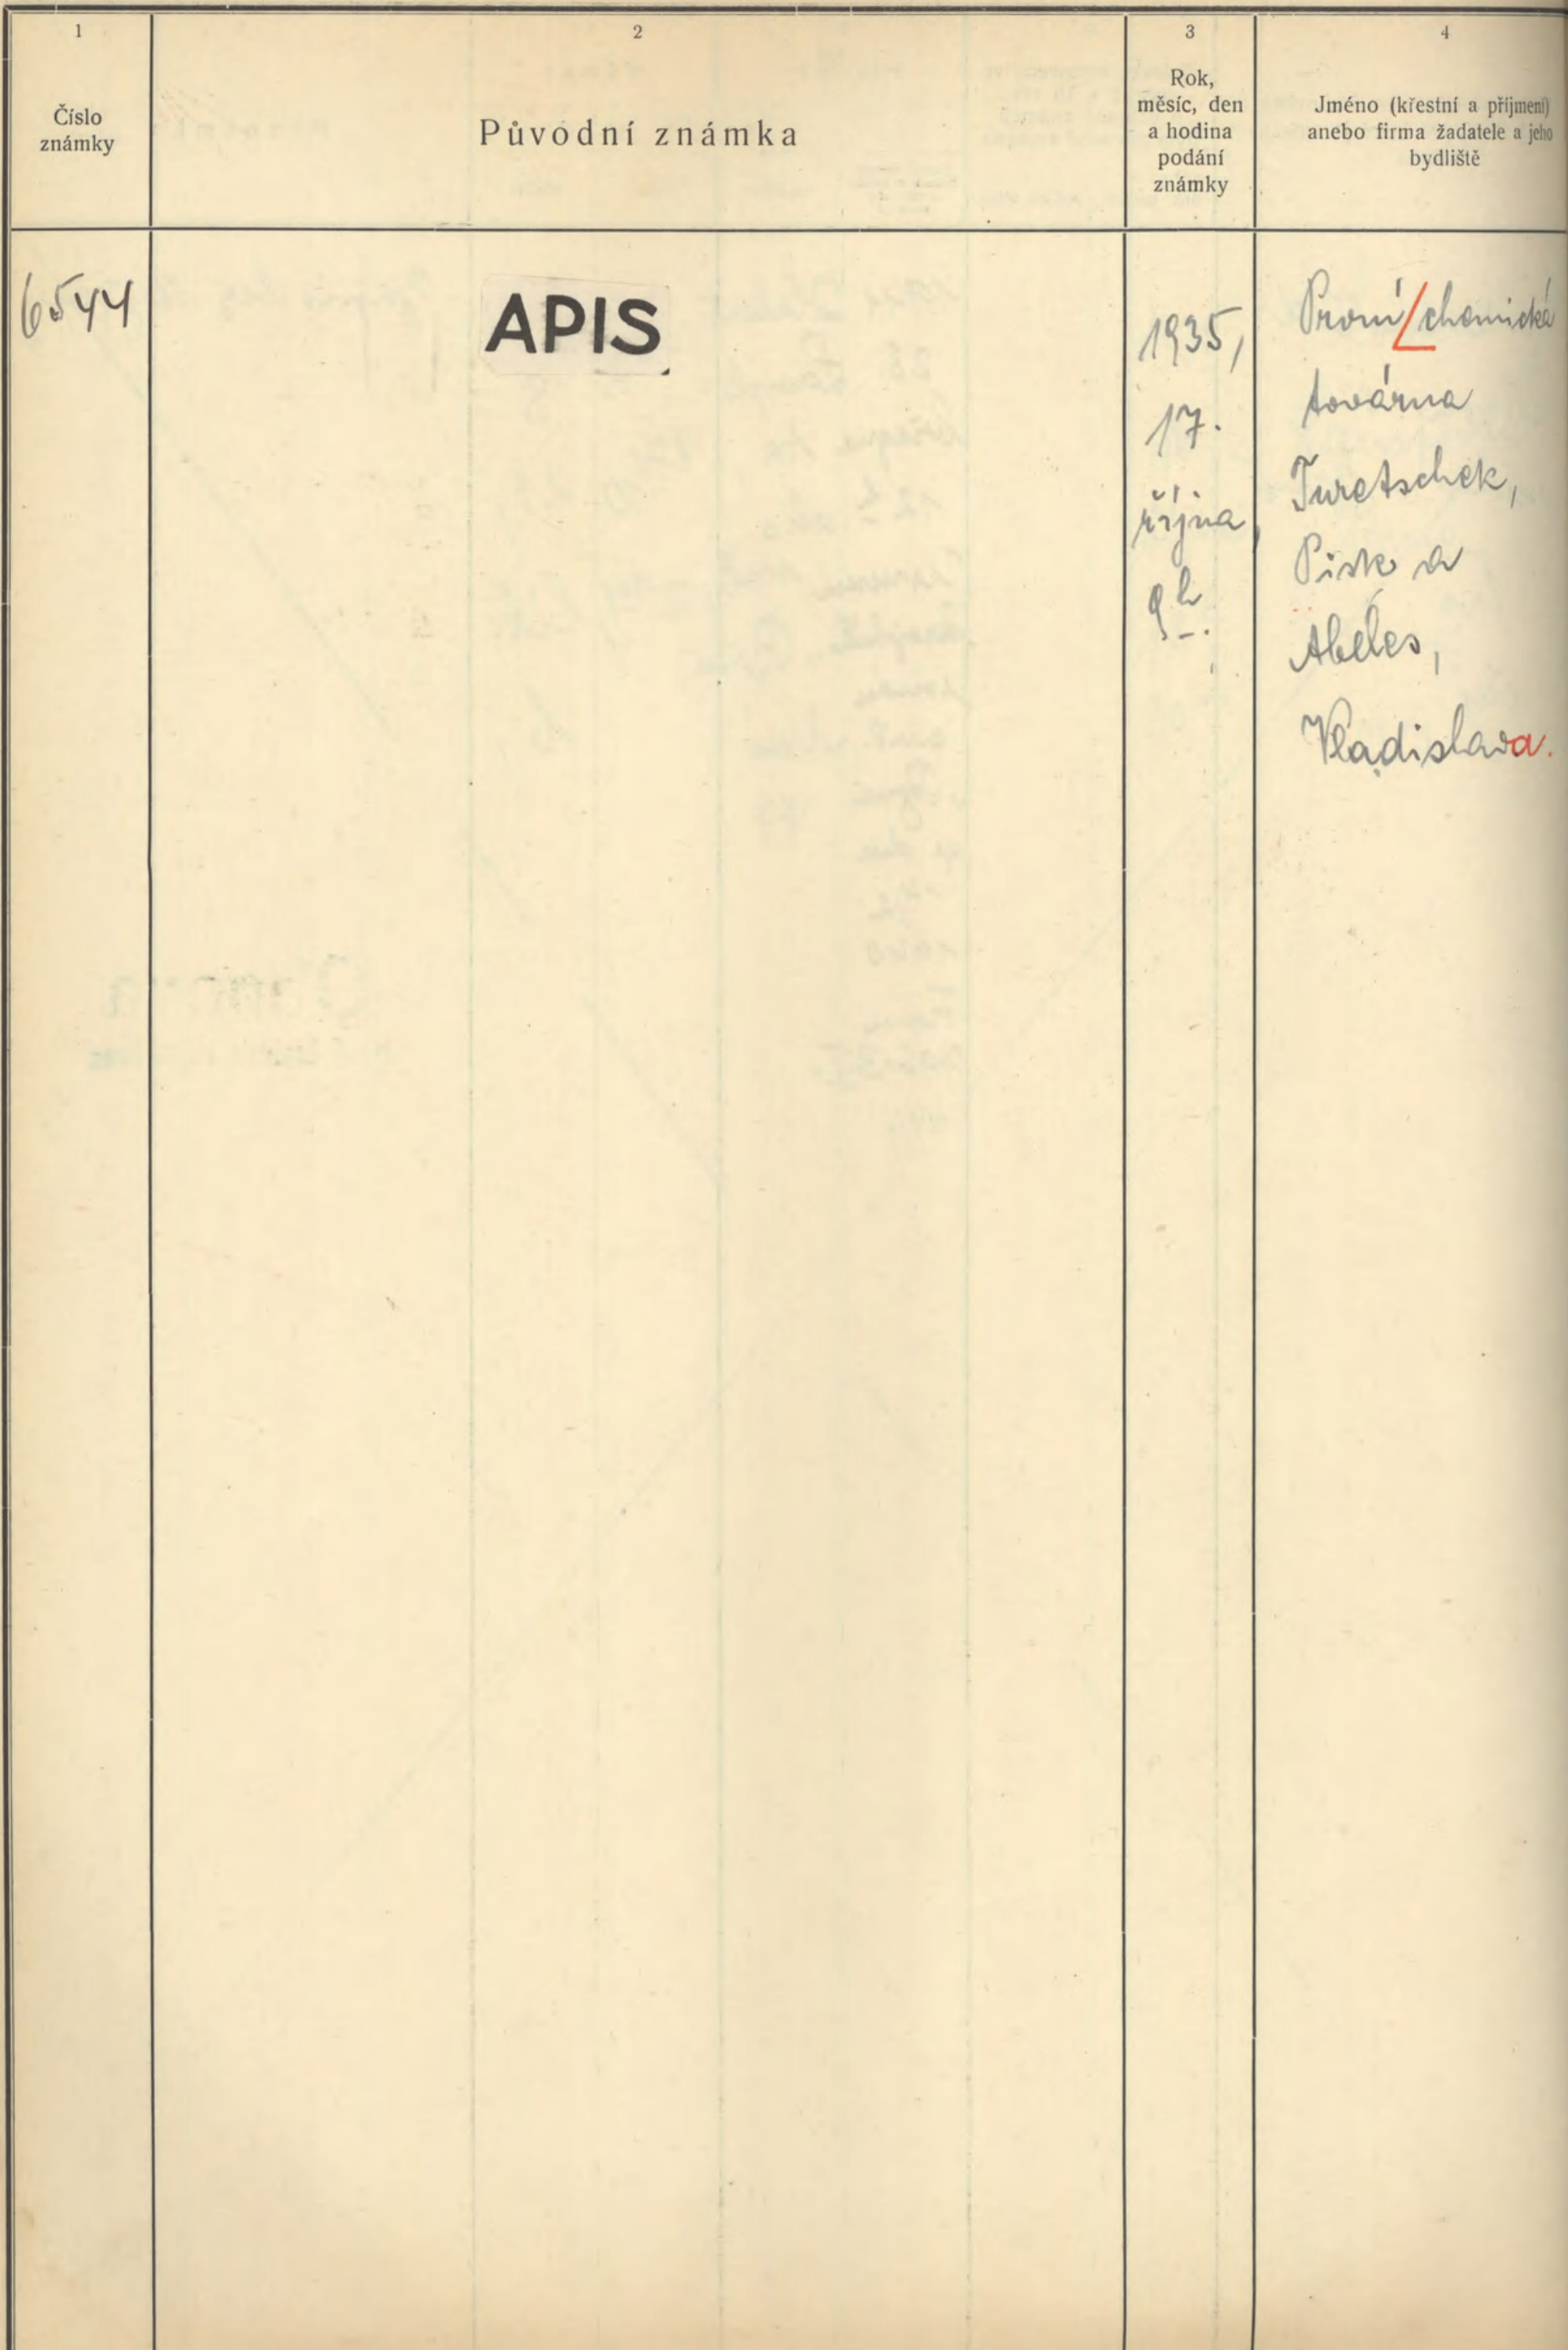 1
Číslo
známky
2
Původní známka
3
Rok,
měsíc, den
a hodina
podání
známky
4
Jméno (křestní a příjmení)
anebo firma žadatele a jeho
bydliště
6544
APIS
1935,
17.
října,
9h.
První chemická
továrna
Turetschek,
Pisk a
Abeles,
Vladislava.